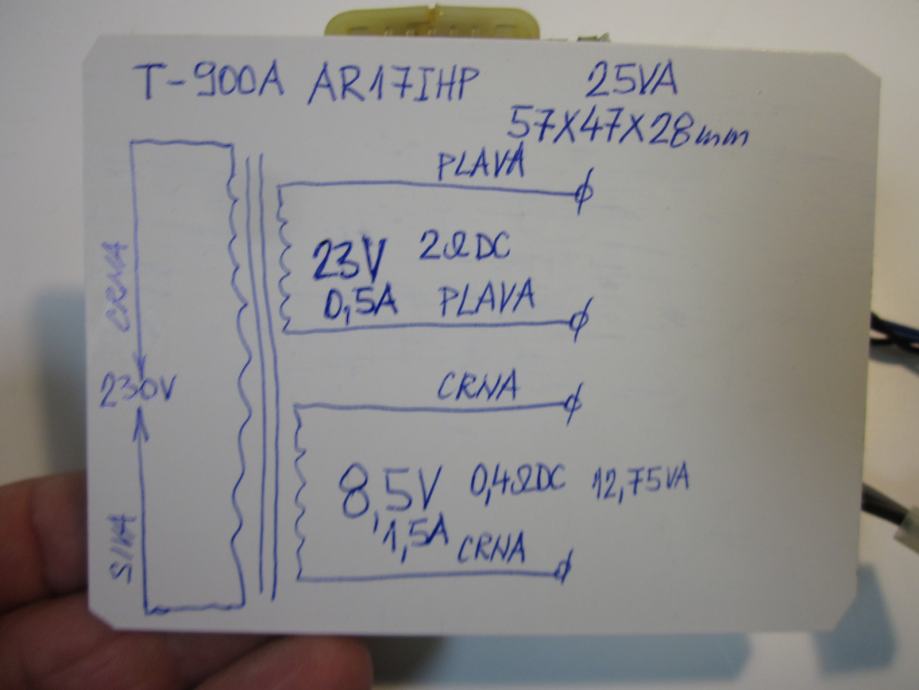 T-900A AR17IHP 25VA
57X47X28mm
PLAVA
23V 2ΩDC
0,5A PLAVA
CRNA
230V
CRNA
8,5V 0,4ΩDC 12,75VA
1,5A CRNA
SIVA